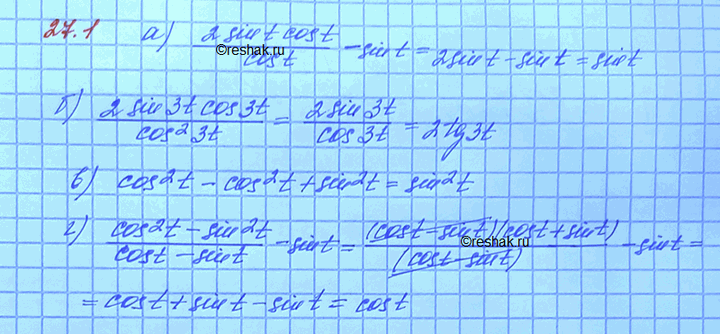 27.1 а) (2 sin t cos t)/(cos t) - sin t = 2 sin t - sin t = sin t
©reshak.ru
б) (2 sin 3t cos 3t)/(cos² 3t) = (2 sin 3t)/(cos 3t) = 2 tg 3t
в) cos² t - cos² t + sin² t = sin² t
г) (cos² t - sin² t)/(cos t - sin t) - sin t = ((cos t - sin t)(cos t + sin t))/((cos t - sin t)) - sin t =
©reshak.ru
= cos t + sin t - sin t = cos t